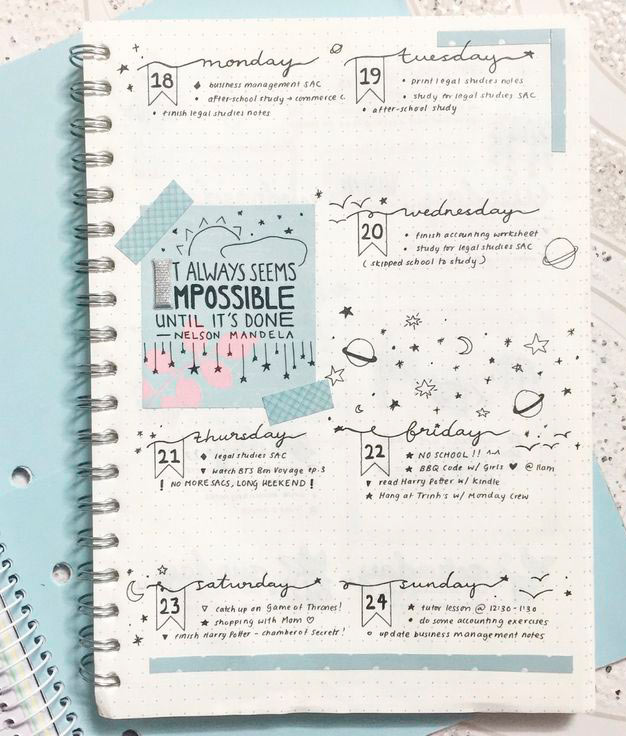 monday
18
business management SAC
after-school study → commerce c.
finish legal studies notes
tuesday
19
print legal studies notes
study for legal studies SAC
after-school study
wednesday
20
finish accounting worksheet
study for legal studies SAC
(skipped school to study)
IT ALWAYS SEEMS
IMPOSSIBLE
UNTIL IT'S DONE
— NELSON MANDELA
thursday
21
legal studies SAC
watch BTS Bon Voyage ep.3
! NO MORE SACS, LONG WEEKEND!
friday
22
NO SCHOOL!! ^-^
BBQ Code w/ Girls ♥ @ 11am
read Harry Potter w/ Kindle
Hang at Trinh's w/ Monday Crew
saturday
23
catch up on Game of Thrones!
shopping with Mom ♡
finish Harry Potter - chamber of secrets!
sunday
24
tutor lesson @ 12:30-1:30
do some accounting exercises
update business management notes